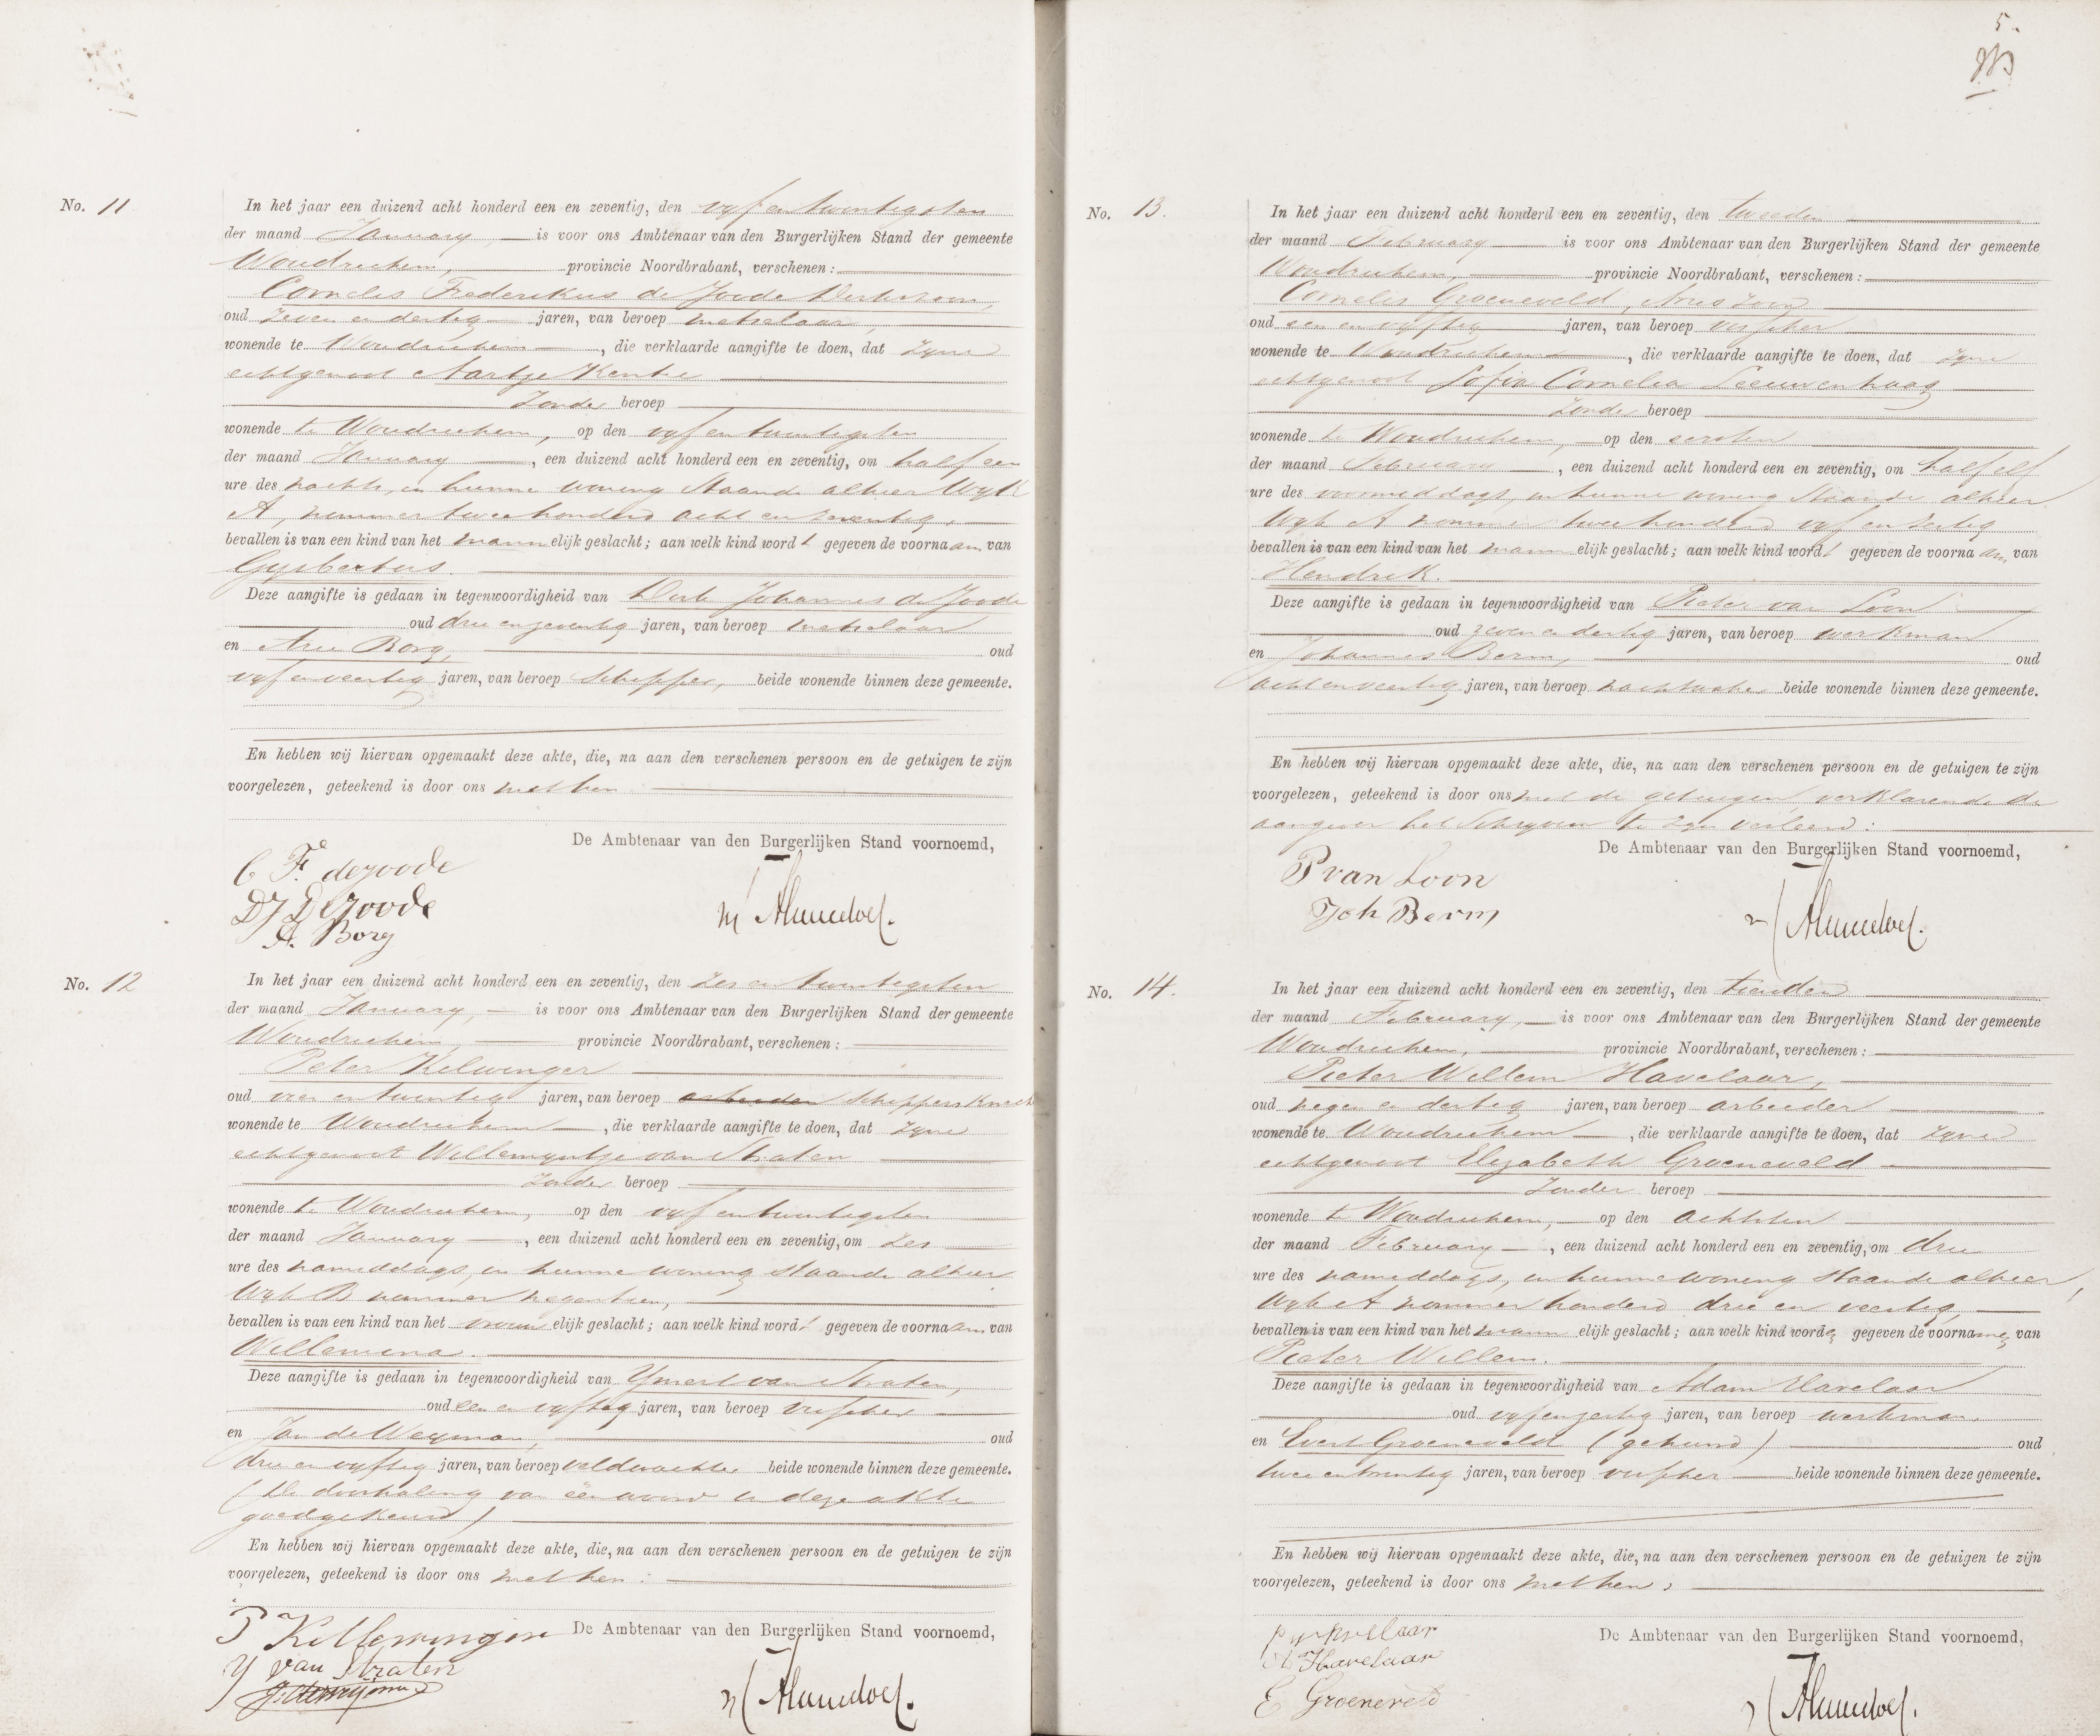 No. 11
In het jaar een duizend acht honderd een en zeventig, den vyf en twintigsten
der maand January is voor ons Ambtenaar van den Burgerlijken Stand der gemeente
Woudrichem, provincie Noordbrabant, verschenen:
Cornelis Frederikus de Joode
oud zeven en dertig jaren, van beroep metselaar,
wonende te Woudrichem, die verklaarde aangifte te doen, dat zyne
echtgenoot Aartje
Zonder beroep
wonende te Woudrichem, op den vyf en twintigsten
der maand January, een duizend acht honderd een en zeventig, om half een
ure des nachts, in hunne woning staande alhier Wyk
A, nummer twee honderd acht en zeventig,
bevallen is van een kind van het mannelijk geslacht; aan welk kind wordt gegeven de voornaam van
Gysbertus.
Deze aangifte is gedaan in tegenwoordigheid van Derk Johannes de Joode
oud drie en zeventig jaren, van beroep metselaar
en Arie Borg, oud
vyf en veertig jaren, van beroep schipper, beide wonende binnen deze gemeente.
En hebben wij hiervan opgemaakt deze akte, die, na aan den verschenen persoon en de getuigen te zijn
voorgelezen, geteekend is door ons met hen
De Ambtenaar van den Burgerlijken Stand voornoemd,
C F. de Joode
D J De Joode
A. Borg
No. 12
In het jaar een duizend acht honderd een en zeventig, den zes en twintigsten
der maand January, is voor ons Ambtenaar van den Burgerlijken Stand der gemeente
Woudrichem, provincie Noordbrabant, verschenen:
Peter
oud en twintig jaren, van beroep arbeider schippersknecht
wonende te Woudrichem, die verklaarde aangifte te doen, dat zyne
echtgenoot Willemyntje van Straten
Zonder beroep
wonende te Woudrichem, op den vyf en twintigsten
der maand January, een duizend acht honderd een en zeventig, om zes
ure des namiddags, in hunne woning staande alhier
Wyk B nummer negentien,
bevallen is van een kind van het vrouwelijk geslacht; aan welk kind wordt gegeven de voornaam van
Willemina.
Deze aangifte is gedaan in tegenwoordigheid van van Straten,
oud een en vyftig jaren, van beroep visscher
en Jan de Weyman, oud
drie en vyftig jaren, van beroep veldwachter beide wonende binnen deze gemeente.
(De doorhaling van één woord in deze akte
goedgekeurd)
En hebben wij hiervan opgemaakt deze akte, die, na aan den verschenen persoon en de getuigen te zijn
voorgelezen, geteekend is door ons met hen:
De Ambtenaar van den Burgerlijken Stand voornoemd,
P
Y van Straten
5.
No. 13.
In het jaar een duizend acht honderd een en zeventig, den tweeden
der maand February is voor ons Ambtenaar van den Burgerlijken Stand der gemeente
Woudrichem, provincie Noordbrabant, verschenen:
Cornelis Groeneveld, Arieszoon
oud een en vyftig jaren, van beroep visscher
wonende te Woudrichem, die verklaarde aangifte te doen, dat zyne
echtgenoot Sofia Cornelia Leeuwenhaag
Zonder beroep
wonende te Woudrichem, op den eersten
der maand February, een duizend acht honderd een en zeventig, om half elf
ure des voormiddags, in hunne woning staande alhier
Wyk A nommer twee honderd vyf en dertig
bevallen is van een kind van het mannelijk geslacht; aan welk kind wordt gegeven de voornaam van
Hendrik.
Deze aangifte is gedaan in tegenwoordigheid van Pieter van Loon
oud zeven en dertig jaren, van beroep werkman
en Johannes Berm, oud
acht en veertig jaren, van beroep nachtwaker beide wonende binnen deze gemeente.
En hebben wij hiervan opgemaakt deze akte, die, na aan den verschenen persoon en de getuigen te zijn
voorgelezen, geteekend is door ons met de getuigen, verklarende de
aangever het schryven te zyn verleerd:
De Ambtenaar van den Burgerlijken Stand voornoemd,
P van Loon
Joh Berm
No. 14.
In het jaar een duizend acht honderd een en zeventig, den tienden
der maand February, is voor ons Ambtenaar van den Burgerlijken Stand der gemeente
Woudrichem, provincie Noordbrabant, verschenen:
Pieter Willem Havelaar,
oud negen en dertig jaren, van beroep arbeider
wonende te Woudrichem, die verklaarde aangifte te doen, dat zyne
echtgenoot Elizabeth Groeneveld
Zonder beroep
wonende te Woudrichem, op den achtsten
der maand February, een duizend acht honderd een en zeventig, om drie
ure des namiddags, in hunne woning staande alhier,
Wyk A nommer honderd drie en veertig,
bevallen is van een kind van het mannelijk geslacht; aan welk kind worden gegeven de voornamen van
Pieter Willem.
Deze aangifte is gedaan in tegenwoordigheid van Adam Havelaar
oud vyf en zestig jaren, van beroep werkman
en Evert Groeneveld (gehuwd) oud
twee en twintig jaren, van beroep visscher beide wonende binnen deze gemeente.
En hebben wij hiervan opgemaakt deze akte, die, na aan den verschenen persoon en de getuigen te zijn
voorgelezen, geteekend is door ons met hen,
De Ambtenaar van den Burgerlijken Stand voornoemd,
A Havelaar
E Groeneveld